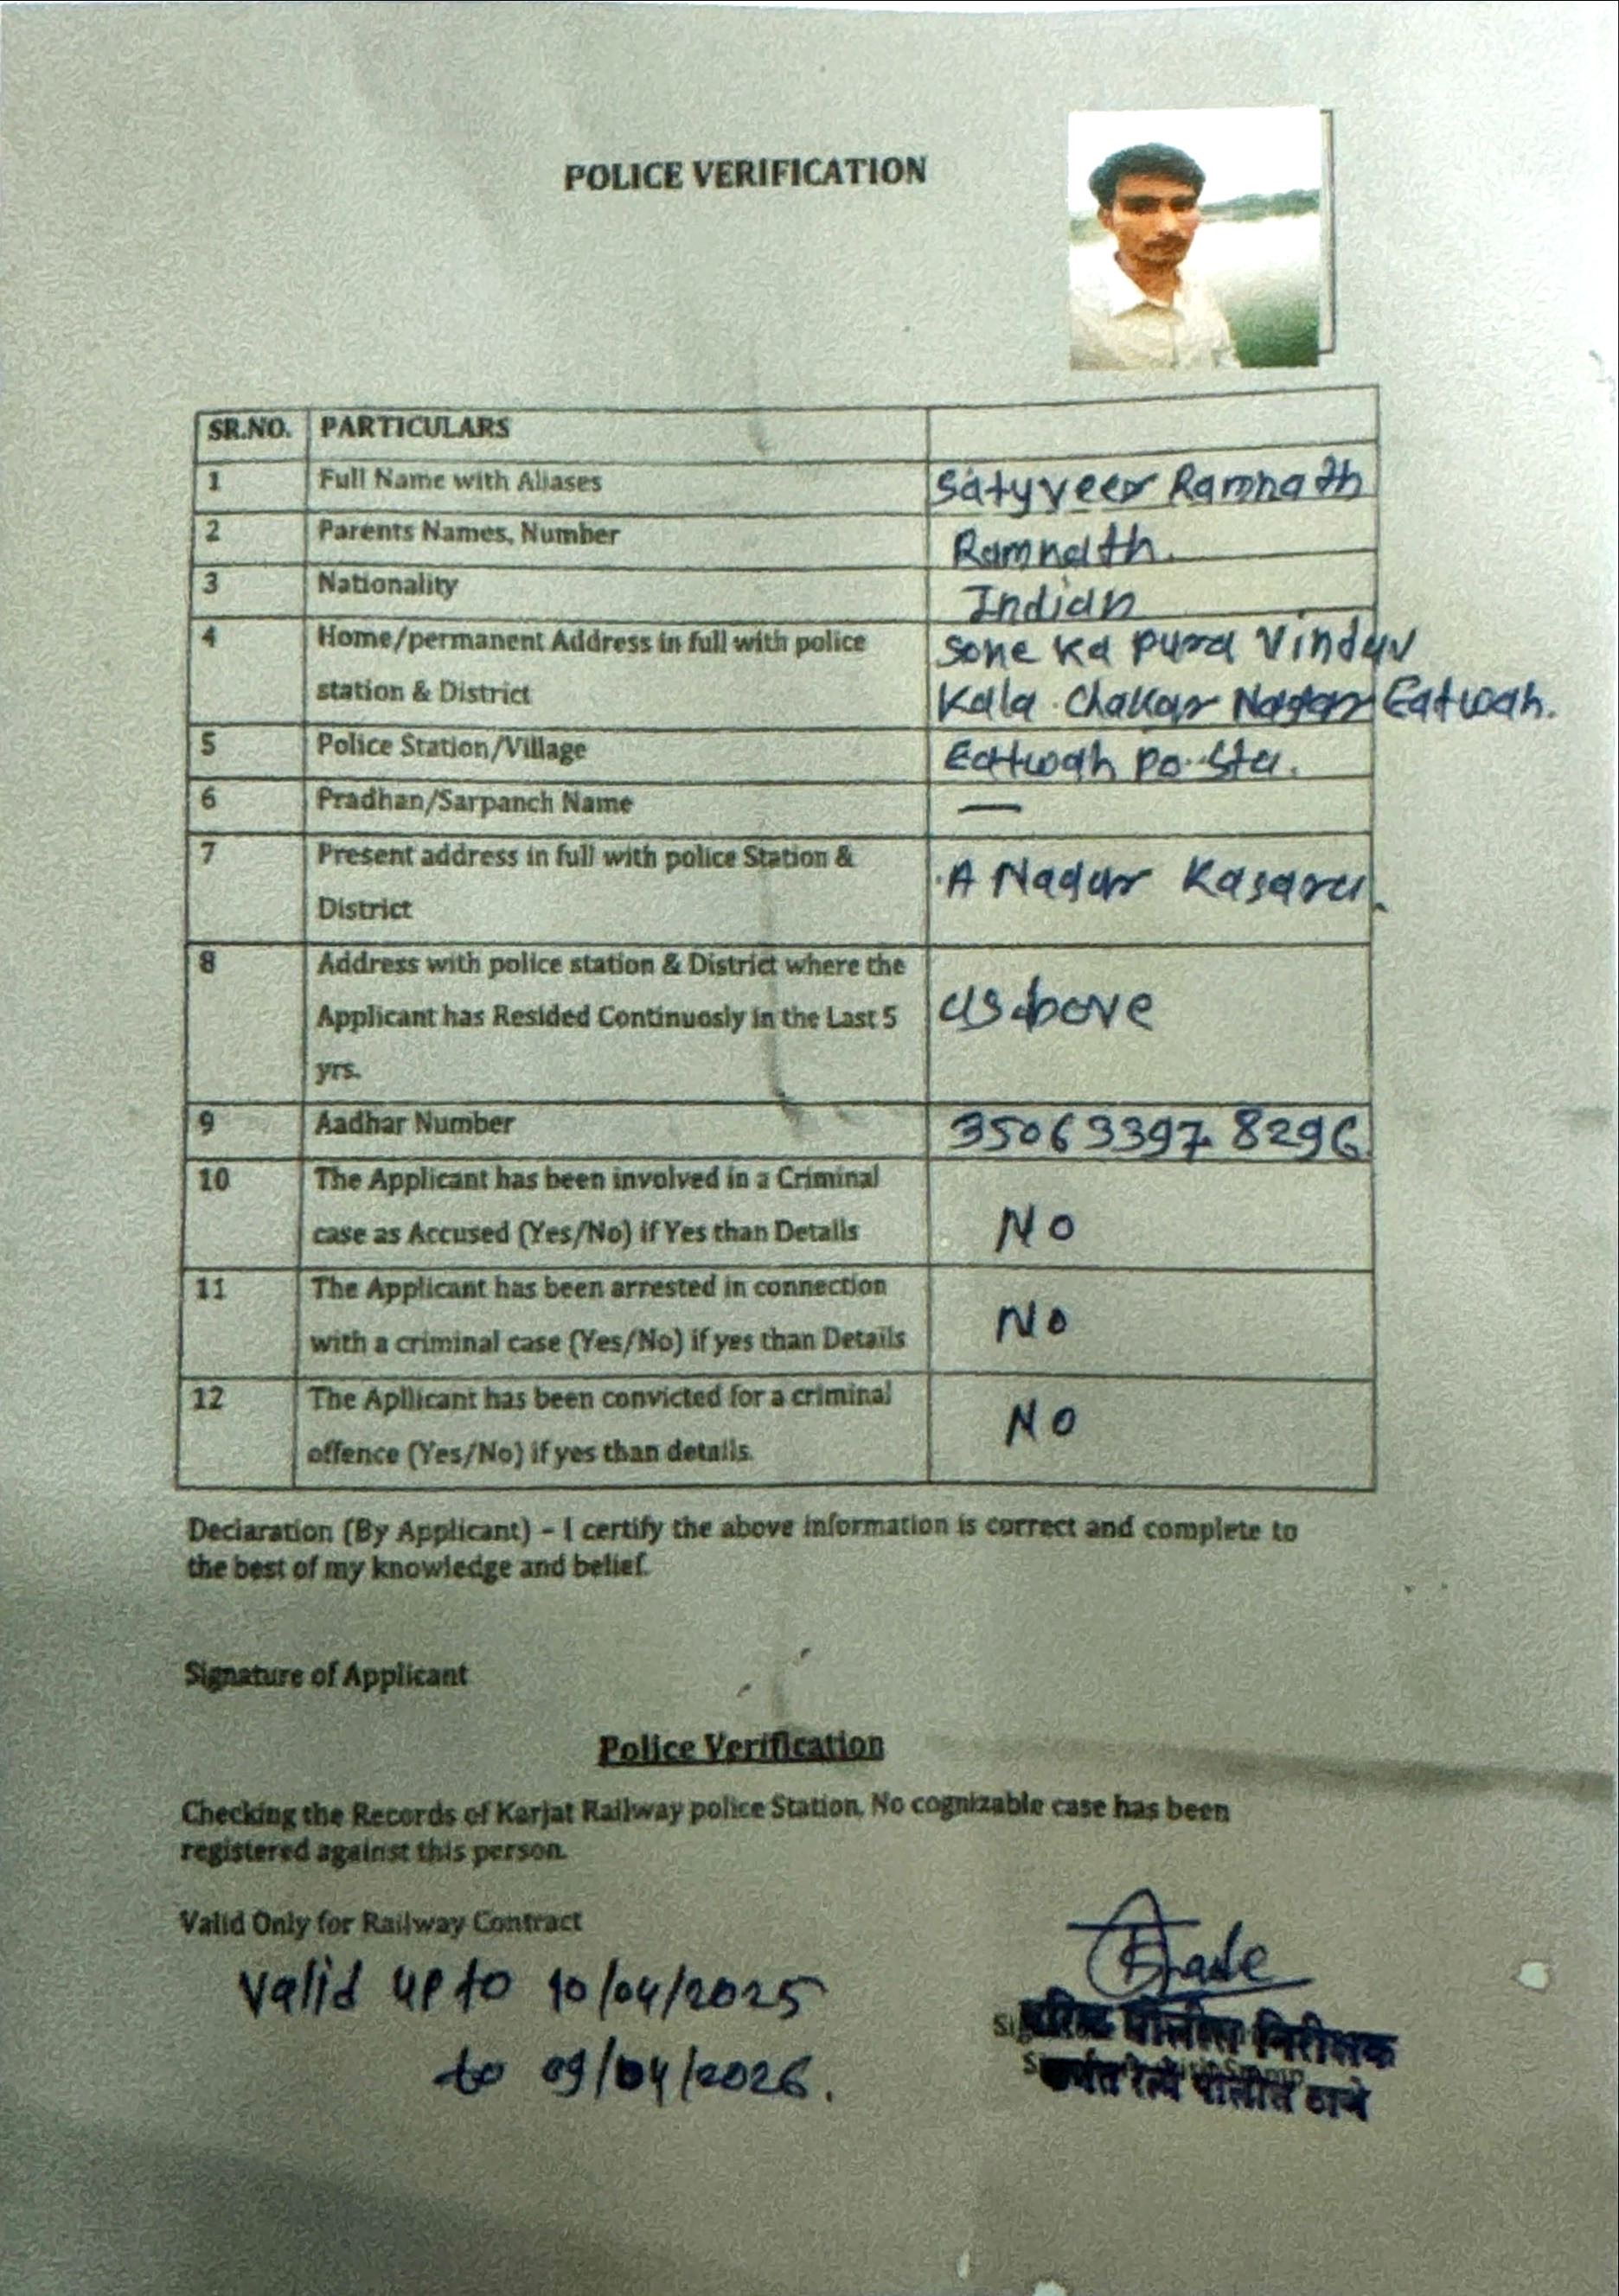 POLICE VERIFICATION
SR.NO. PARTICULARS
1 Full Name with Aliases Satyveer Ramnath
2 Parents Names, Number Ramnath.
3 Nationality Indian
4 Home/permanent Address in full with police Sone ka pura Vindav
station & District Kala Chakar Nagar Eatwah.
5 Police Station/Village Eatwah po. Sta.
6 Pradhan/Sarpanch Name —
7 Present address in full with police Station & A Nagar Kasara.
District
8 Address with police station & District where the
Applicant has Resided Continuosly in the Last 5 as above
yrs.
9 Aadhar Number 3506 3397 8296
10 The Applicant has been involved in a Criminal
case as Accused (Yes/No) if Yes than Details No
11 The Applicant has been arrested in connection
with a criminal case (Yes/No) if yes than Details No
12 The Apllicant has been convicted for a criminal No
offence (Yes/No) if yes than details.
Declaration (By Applicant) - I certify the above information is correct and complete to
the best of my knowledge and belief.
Signature of Applicant
Police Verification
Checking the Records of Karjat Railway police Station, No cognizable case has been
registered against this person.
Valid Only for Railway Contract
Valid up to 10/04/2025
to 09/04/2026.
वरिष्ठ पोलीस निरीक्षक
कर्जत रेल्वे पोलीस ठाणे